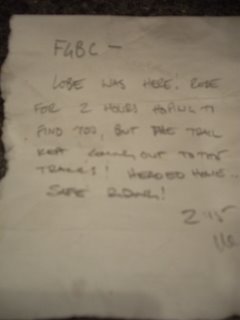 FGBC -
LOBE WAS HERE! RODE
FOR 2 HOURS HOPING TO
FIND YOU, BUT THE TRAIL
KEPT COMING OUT TO TOY
TRACKS! HEADED HOME..
SAFE RIDING!
2:15